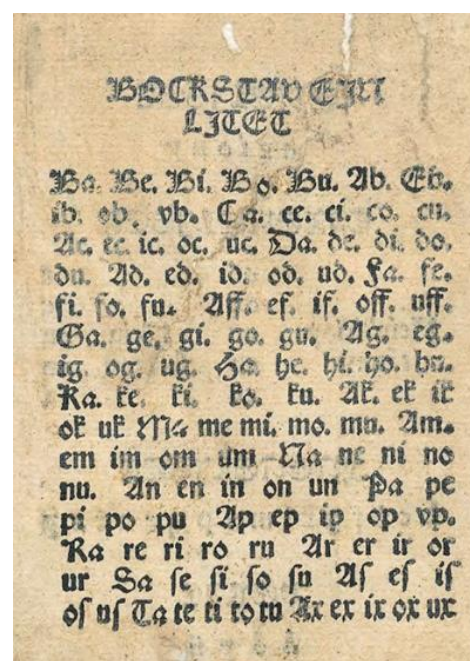 BOCKSTAVEIN
LITET
Ba. Be. Bi. Bo. Bu. Ab. Eb.
ib. ob. vb. Ca. ce. ci. co. cu.
Ac. ec. ic. oc. uc. Da. de. di. do.
du. Ad. ed. id. od. ud. Fa. fe.
fi. fo. fu. Aff. ef. if. off. uff.
Ga. ge. gi. go. gu. Ag. eg.
ig. og. ug. Ha he. hi. ho. hu.
Ka. ke. ki. ko. ku. Ak. ek ik
ok uk Ma me mi. mo. mu. Am.
em im om um Na ne ni no
nu. An en in on un Pa pe
pi po pu Ap ep ip op vp.
Ra re ri ro ru Ar er ir or
ur Sa ſe ſi ſo ſu Aſ eſ iſ
oſ uſ Ta te ti to tu Ax ex ix ox ux